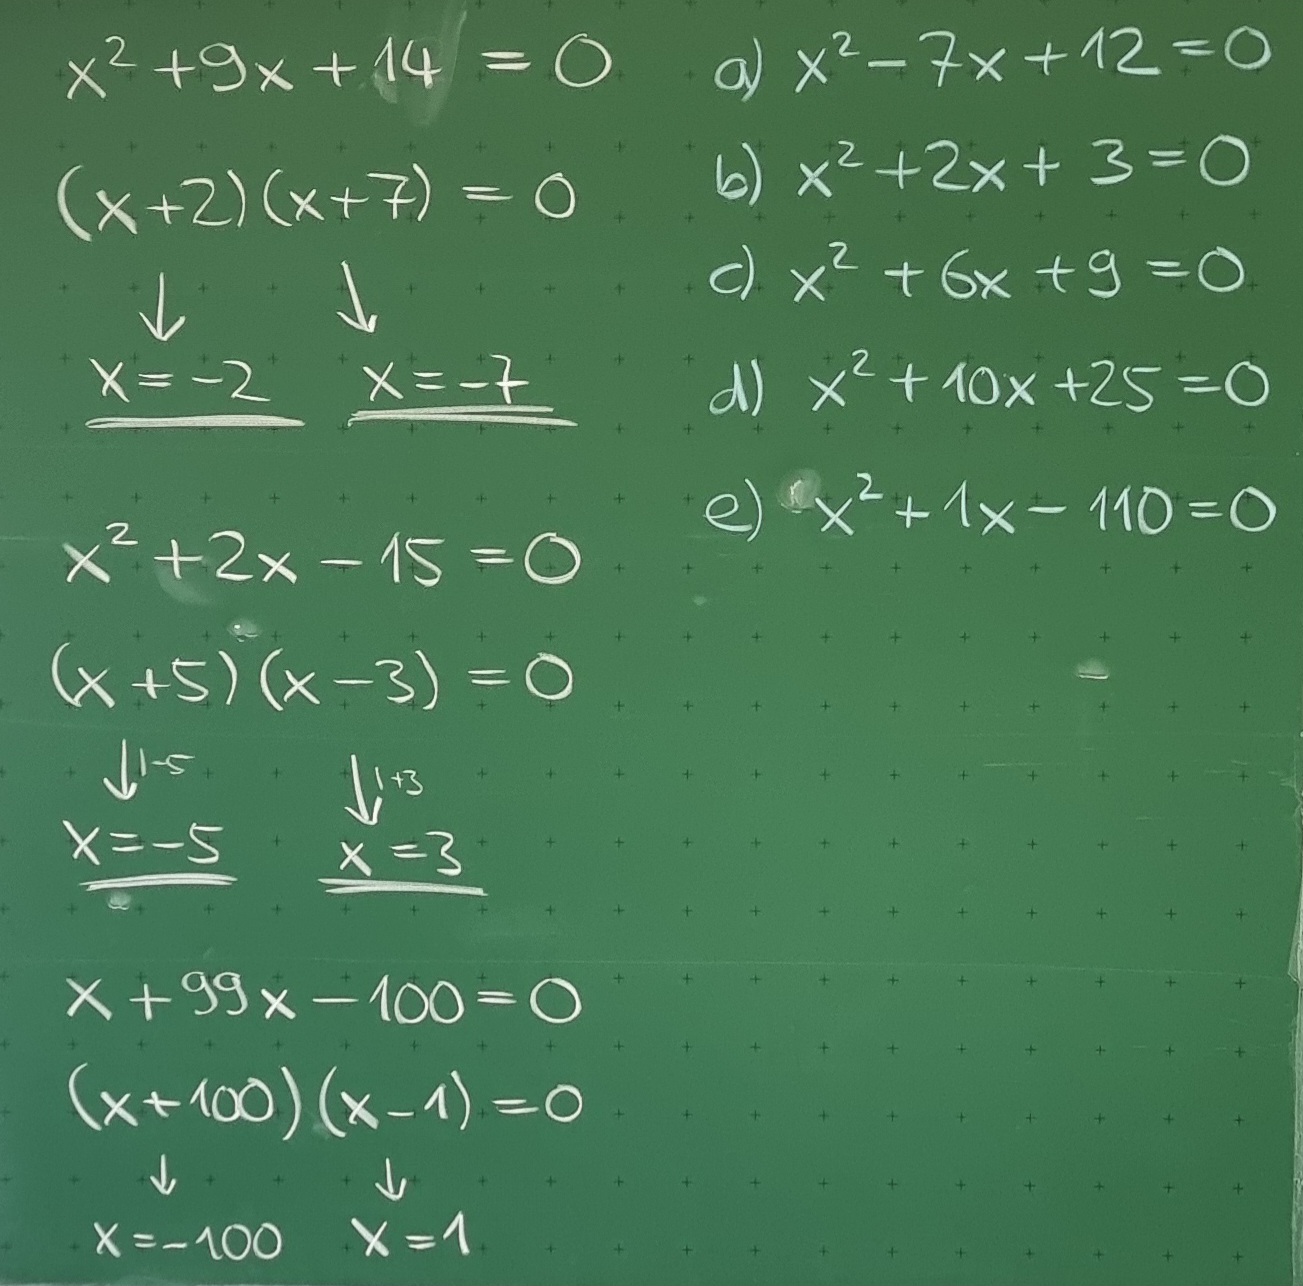 x² + 9x + 14 = 0
(x+2)(x+7) = 0
↓ ↓
x = -2 x = -7
x² + 2x - 15 = 0
(x+5)(x-3) = 0
↓ |-5 ↓ |+3
x = -5 x = 3
x + 99x - 100 = 0
(x+100)(x-1) = 0
↓ ↓
x = -100 x = 1
a) x² - 7x + 12 = 0
b) x² + 2x + 3 = 0
c) x² + 6x + 9 = 0
d) x² + 10x + 25 = 0
e) x² + 1x - 110 = 0